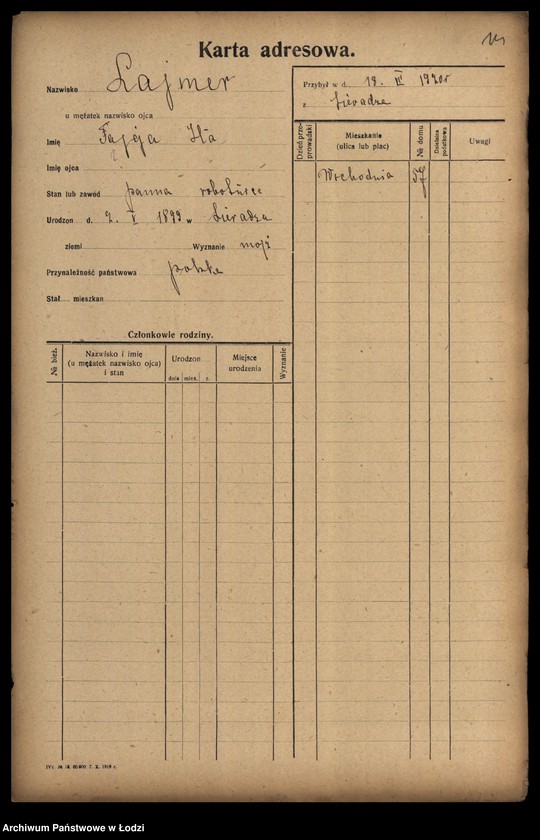 Karta adresowa.
Nazwisko Lajmer
u mężatek nazwisko ojca
Imię Fajga Ita
Imię ojca
Stan lub zawód panna
Urodzon d. 2. V 1899 w Sieradzu
ziemi Wyznanie mojż
Przynależność państwowa polska
Stał mieszkan
Przybył w d. 18. 1920r
z Sieradza
Dzień przeprowadzki
Mieszkanie
(ulica lub plac)
№ domu
Dzielnica podatkowa
Uwagi
Wschodnia 57
Członkowie rodziny.
№ bież.
Nazwisko i imię
(u mężatek nazwisko ojca)
i stan
Urodzon
dnia mies. r.
Miejsce
urodzenia
Wyznanie
Archiwum Państwowe w Łodzi